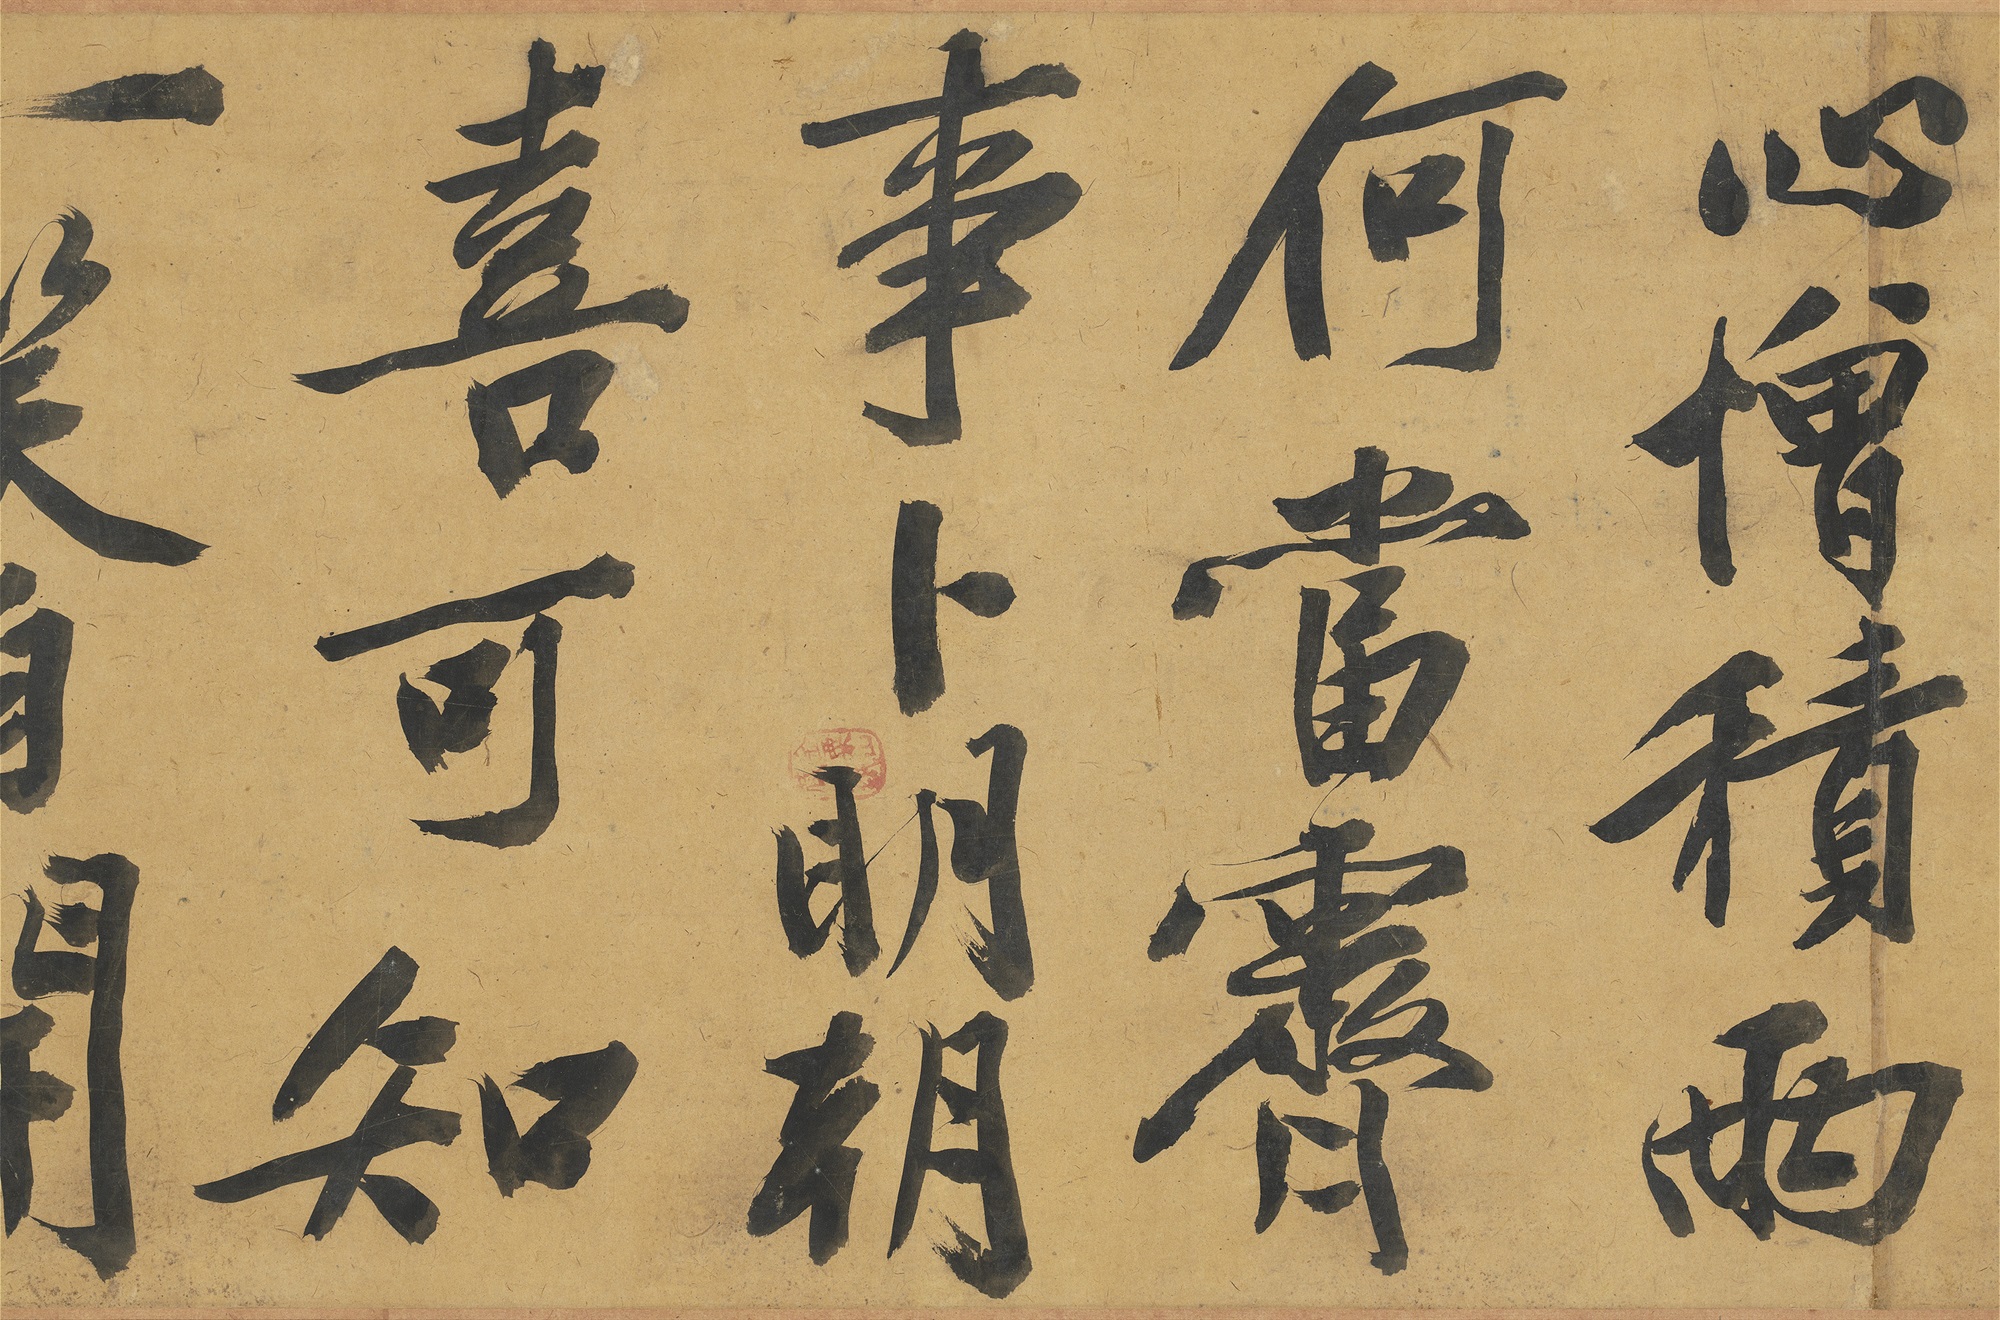 心憎積雨
何當霽
事卜明朝
喜可知
一笑自